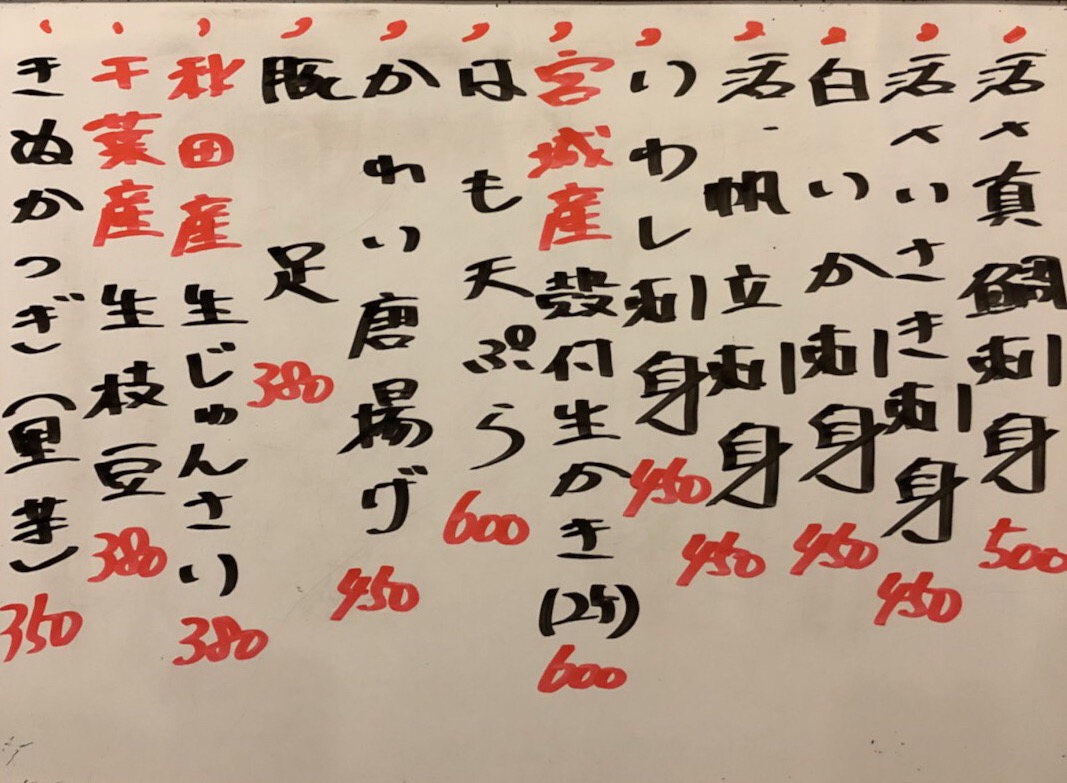 活〆真鯛刺身 500
活〆いさき刺身 450
白いか刺身 450
活帆立刺身 450
いわし刺身 450
宮城産殻付生かき(2ケ) 600
はも天ぷら 600
かれい唐揚げ 450
豚足 380
秋田産生じゅんさい 380
千葉産生枝豆 380
きぬかつぎ(里芋) 350